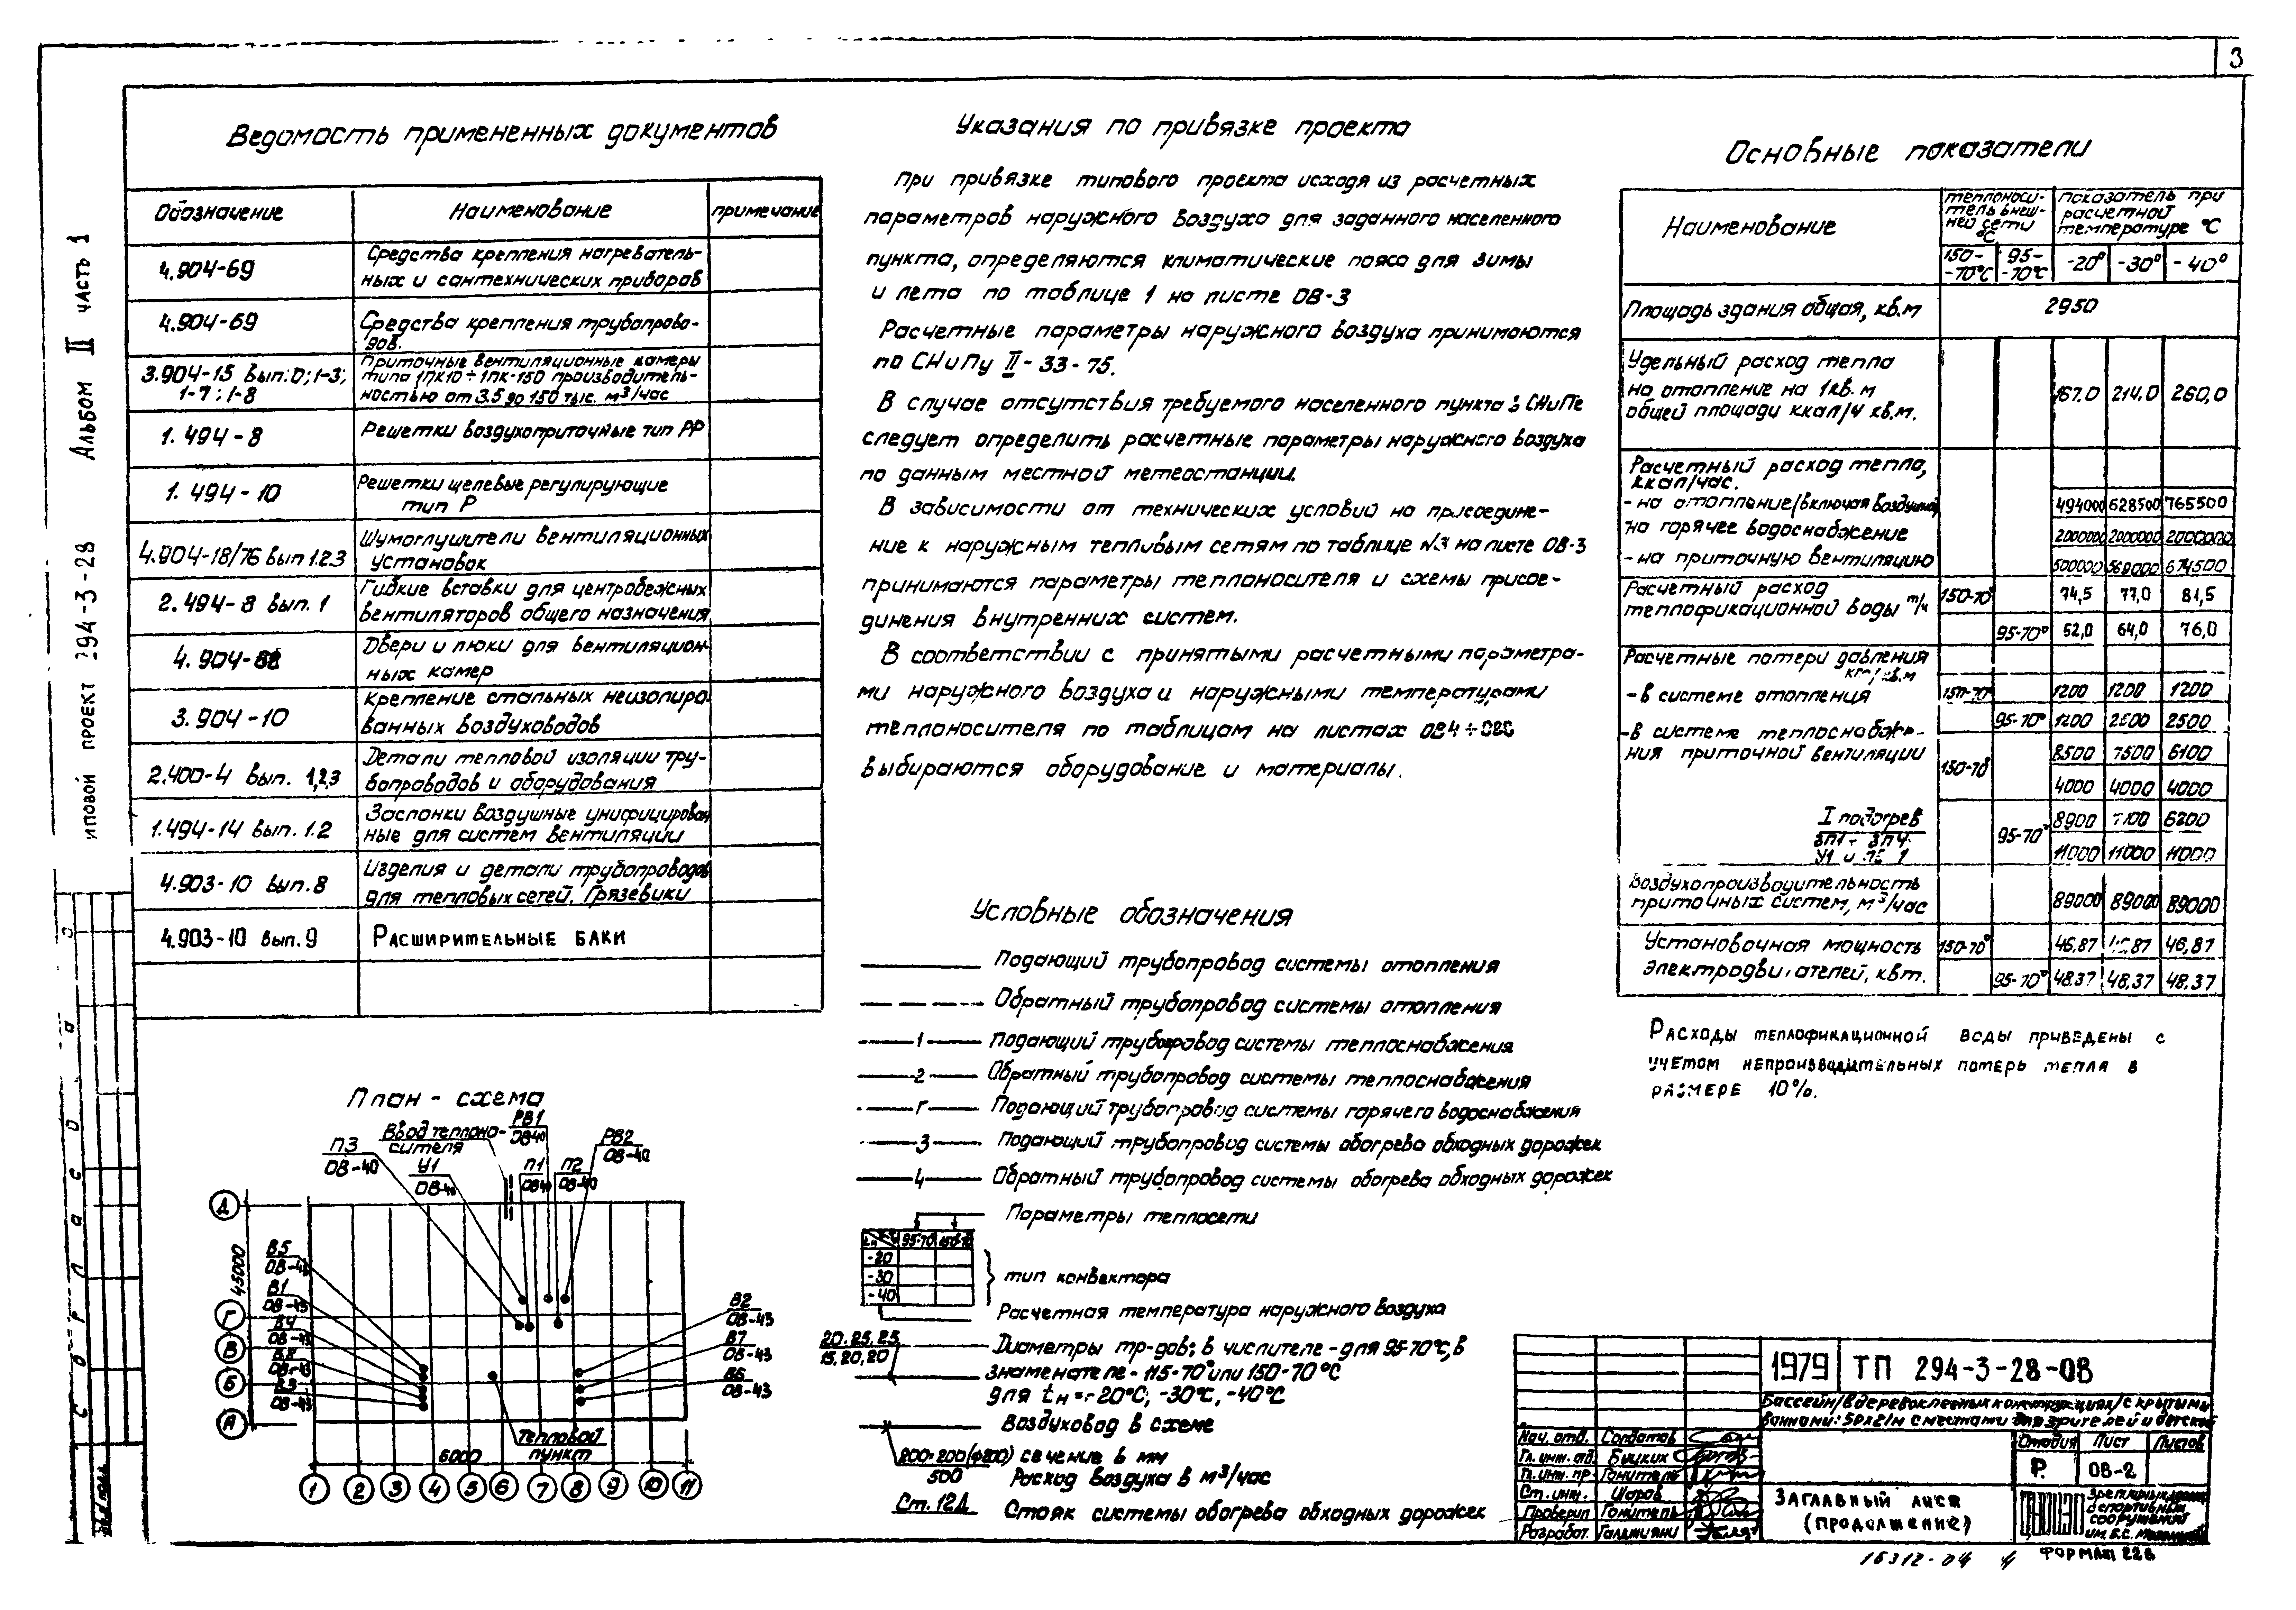 3
Альбом II часть 1
иповой проект 294-3-28
Ведомость примененных документов
Обозначение Наименование примечание
4.904-69 Средства крепления нагреватель-
ных и сантехнических приборов
4.904-69 Средства крепления трубопрово-
дов.
3.904-15 вып.:0; 1-3; 1-7; 1-8 Приточные вентиляционные камеры
типа 1ПК10÷1ПК-150 производитель-
ностью от 3.5 до 150 тыс. м³/час
1.494-8 Решетки воздухоприточные тип РР
1.494-10 Решетки щелевые регулирующие
тип Р
4.904-18/76 вып 1.2.3 Шумоглушители вентиляционных
установок
2.494-8 вып. 1 Гибкие вставки для центробежных
вентиляторов общего назначения
4.904- Двери и люки для вентиляцион-
ных камер
3.904-10 Крепление стальных неизолиро-
ванных воздуховодов
2.400-4 вып. 1,2,3 Детали тепловой изоляции тру-
бопроводов и оборудования
1.494-14 вып. 1.2 Заслонки воздушные унифицирован
ные для систем вентиляции
4.903-10 вып. 8 Изделия и детали трубопроводов
для тепловых сетей. Грязевики
4.903-10 вып. 9 Расширительные баки
План-схема
П3 ОВ-40
Ввод теплоно-
сителя
У1 ОВ-40
РВ1 ОВ40
П1 ОВ40
П2 ОВ-40
РВ2 ОВ-40
Д
Г
В
Б
А
45000
В5 ОВ-43
В1 ОВ-43
В4 ОВ-43
В8 ОВ-43
В3 ОВ-43
В2 ОВ-43
В7 ОВ-43
В6 ОВ-43
6000
Тепловой
пункт
1 2 3 4 5 6 7 8 9 10 11
Указания по привязке проекта
При привязке типового проекта исходя из расчетных
параметров наружного воздуха для заданного населенного
пункта, определяются климатические пояса для зимы
и лета по таблице 1 на листе ОВ-3
Расчетные параметры наружного воздуха принимаются
по СНиПу II-33-75.
В случае отсутствия требуемого населенного пункта в СНиПе
следует определить расчетные параметры наружного воздуха
по данным местной метеостанции.
В зависимости от технических условий на присоедине-
ние к наружным тепловым сетям по таблице №3 на листе ОВ-3
принимаются параметры теплоносителя и схемы присое-
динения внутренних систем.
В соответствии с принятыми расчетными параметра-
ми наружного воздуха и наружными температурами
теплоносителя по таблицам на листах
выбираются оборудование и материалы.
Условные обозначения
Подающий трубопровод системы отопления
Обратный трубопровод системы отопления
1 Подающий трубопровод системы теплоснабжения
2 Обратный трубопровод системы теплоснабжения
Г Подающий трубопровод системы горячего водоснабжения
3 Подающий трубопровод системы обогрева обходных дорожек
4 Обратный трубопровод системы обогрева обходных дорожек
Параметры теплосети
95-70 150-70
-20
-30
-40
тип конвектора
Расчетная температура наружного воздуха
20.25.25
15,20,20
Диаметры тр-дов: в числителе - для 95-70°С, в
знаменателе - 115-70° или 150-70°С
для tн = -20°С; -30°С, -40°С
Воздуховод в схеме
200×200(ф200) сечение в мм
500 Расход воздуха в м³/час
Ст. 12Д Стояк системы обогрева обходных дорожек
Основные показатели
Наименование теплоноси-
тель внеш-
ней сети
°С
показатель при
расчетной
температуре °С
150-
-70°С 95-
-70°С -20° -30° -40°
Площадь здания общая, кв.м 2950
Удельный расход тепла
на отопление на 1кв.м
общей площади ккал/ч кв.м. 167.0 214.0 260,0
Расчетный расход тепла,
ккал/час.
- на отопление (включая воздушное) 494000 628500 765500
на горячее водоснабжение 2000000 2000000 2000000
- на приточную вентиляцию 500000 568000 674500
Расчетный расход
теплофикационной воды т/ч 150-70° 74,5 77,0 81,5
95-70° 52,0 64,0 76,0
Расчетные потери давления
кгс/кв.м
- в системе отопления 150-70° 1200 1200 1200
95-70° 1200 2500
- в системе теплоснабже-
ния приточной вентиляции 150-70° 8500 7500 6100
4000 4000 4000
I подогрев 95-70° 8900 6200
11000 11000 11000
Воздухопроизводительность
приточных систем, м³/час 89000 89000 89000
Установочная мощность
электродвигателей, квт. 150-70° 46,87 46,87 46,87
95-70° 48.37 48,37 48.37
Расходы теплофикационной воды приведены с
учетом непроизводительных потерь тепла в
размере 10%.
1979 ТП 294-3-28-ОВ
Бассейн (в деревоклееных конструкциях) с крытыми
ваннами: 50х21м с местами для зрителей и детской
Нач. отд. Солдатов
Гл. инж. отд. Быцких
Гл. инж. пр. Гонитель
Ст. инж. Шаров
Проверил Гонитель
Разработ.
Стадия Лист Листов
Р. ОВ-2
Заглавный лист
(продолжение)
зрелищных зданий
и спортивных
сооружений
им. Б.С. Мезенцева
16312-04 4 Формат 22в
Согласовано